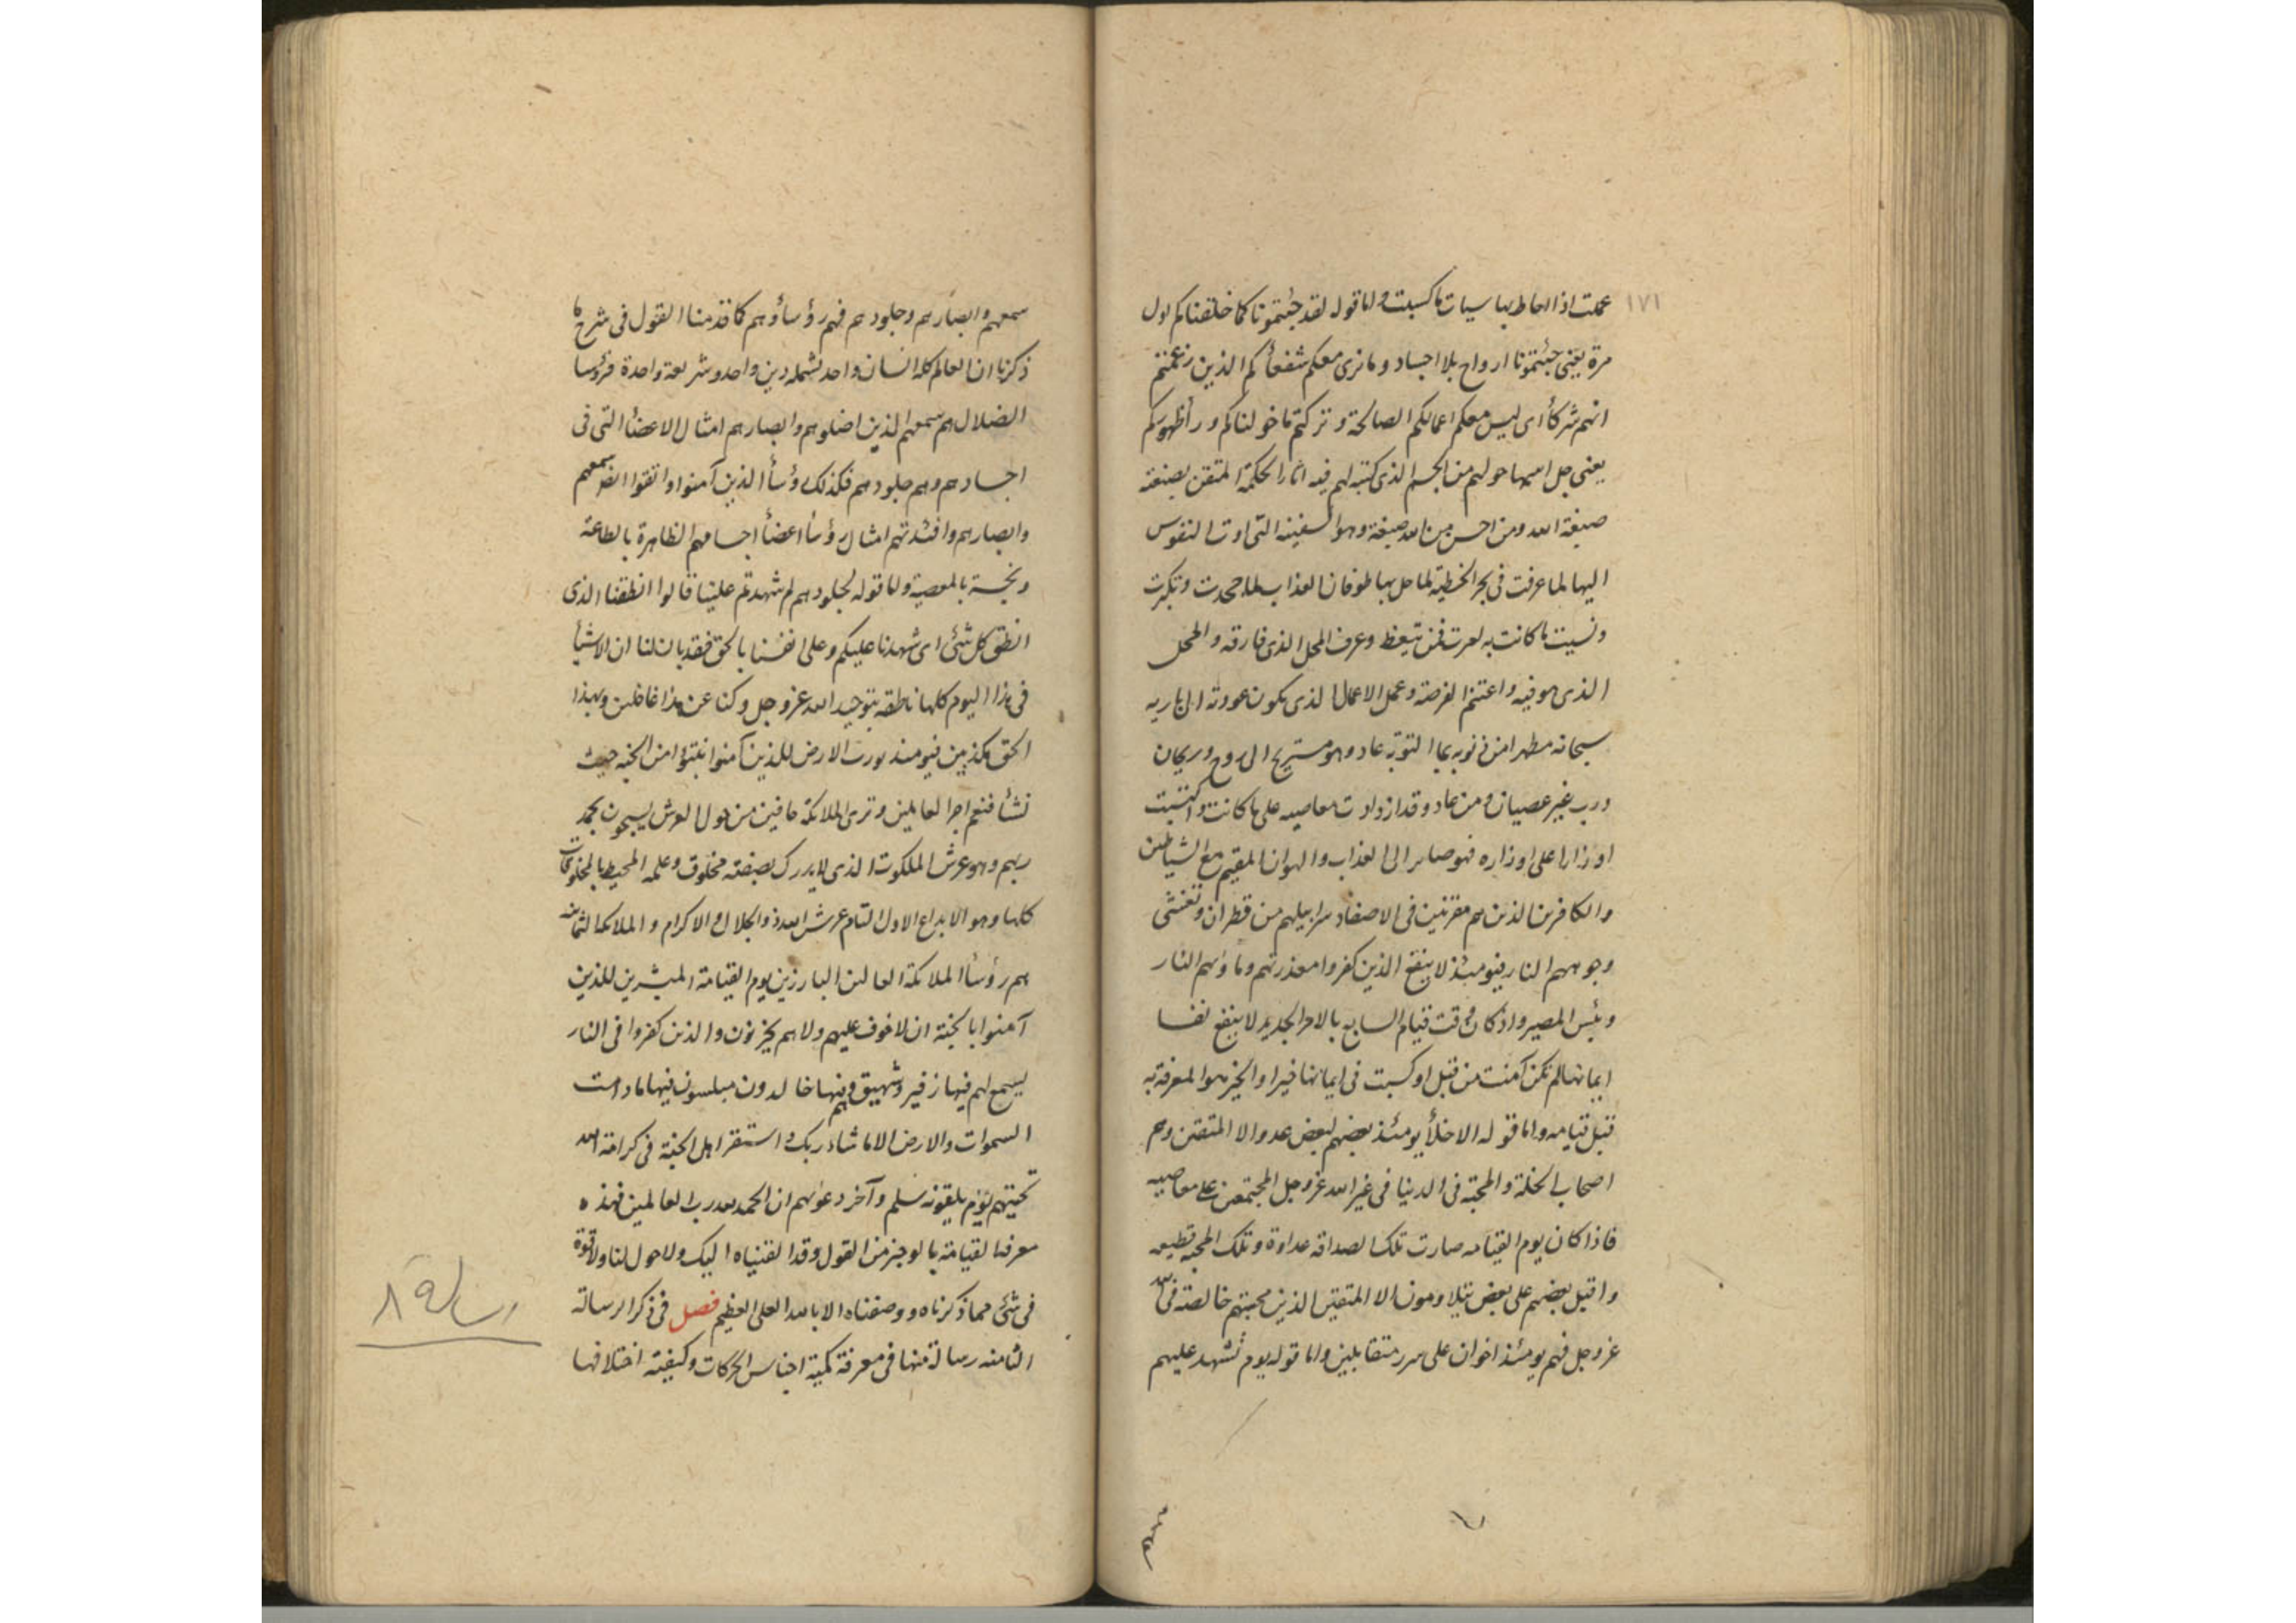 ١٧١
عملت اذا احاط بها سيات ما كسبت واما قوله لقد جئتمونا كما خلقناكم اول
مرة يعنى جئتمونا ارواح بلا اجساد وما نرى معكم شفعاكم الذين زعمتم
انهم شركأ اى ليس معكم اعمالكم الصالحة وتركتم ما خولناكم ورأ ظهوركم
يعنى جل اسمه ما حولهم من الجسم الذى كتبه لهم فيه اثار الحكمة المتقن بصنعته
صبغة الله ومن احسن من الله صبغة وهو السفينه التى اوت النفوس
اليها لما غرقت فى بحر الخطية لما حل بها طوفان العذاب لما جحدت وتكبرت
ونسيت ما كانت به امرت فمن تيقظ وعرف المحل الذى فارقه والمحل
الذى هو فيه واغتنم الفرصة وعمل الاعمال الذى يكون عودته الى باريه
سبحانه مطهرا من ذنوبه بما التوبة عاد وهو مستريح الى روح وريحان
ورب غير عصيان ومن عاد وقد ازدادت معاصيه على ما كانت واكتسبت
اوزارا على اوزاره فهو صاير الى العذاب والهوان المقيم مع الشياطين
والكافرين الذين هم مقرنين فى الاصفاد سرابيلهم من قطران وتغشى
وجوههم النار فيومئذ لا ينفع الذين كفروا معذرتهم وماؤيهم النار
وبئس المصير واذ كان وقت قيام السابع بالامر الجديد لا ينفع نفسا
ايمانها لم تكن آمنت من قبل او كسبت فى ايمانها خيرا والخير هو المعرفة به
قبل قيامه واما قوله الاخلأ يومئذ بعضهم لبعض عدو الا المتقين وهم
اصحاب الخلة والمحبة فى الدنيا فى غير الله عز وجل المجتمعين على معاصيه
فاذا كان يوم القيامه صارت تلك الصداقه عداوة وتلك المحبة قطيعه
واقبل بعضهم على بعض يتلاومون الا المتقين الذين محبتهم خالصة فى الله
عز وجل فهم يومئذ اخوان على سرر متقابلين واما قوله يوم تشهد عليهم
سمعهم وابصارهم وجلودهم فهم رؤسأوهم كما قدمنا القول فى شرح ما
ذكرنا ان العالم كله انسان واحد تشمله دين واحد وشريعة واحدة فرؤسا
الضلال هم سمعهم الذين اضلوهم وابصارهم امثال الاعضأ التى فى
اجسادهم وهم جلودهم فكذلك رؤسأ الذين آمنوا واتقوا سمعهم
وابصارهم وافئدتهم امثال رؤسأ اعضأ اجسامهم الظاهرة بالطاعة
ونجسة بالمعصية واما قوله لجلودهم لم شهدتم علينا قالوا انطقنا الذى
انطق كل شئ اى شهدنا عليكم وعلى انفسنا بالحق فقد بان لنا ان الاشيأ
فى هذا اليوم كلها ناطقه بتوحيد الله عز وجل وكنا عن هذا غافلين وبهذا
الحق مكذبين فيومئذ يورث الارض للذين آمنوا نتبؤا من الجنه حيث
نشأ فنعم اجر العاملين وترى الملائكة حافين من حول العرش يسبحون بحمد
ربهم وهو عرش الملكوت الذى لا يدرك بصفته مخلوق وعلمه المحيط بالمخلوقات
كلها وهو الابداع الاول التام عرش الله ذو الجلال والاكرام والملائكة الثمانيه
هم رؤسأ الملائكة العالين البارزين يوم القيامة المبشرين للذين
آمنوا بالجنة ان لا خوف عليهم ولاهم يحزنون والذين كفروا فى النار
يسمع لهم فيها زفير وشهيق وهم فيها خالدون مبلسون فيها ما دامت
السموات والارض الا ما شاء ربك واستقر اهل الجنة فى كرامة الله
تحيتهم يوم يلقونه سلم وآخر دعويهم ان الحمد لله رب العالمين فهذه
معرفة القيامة بالوجيز من القول وقد القيناه اليك ولا حول لنا ولا قوة
فى شئ مما ذكرناه ووصفناه الا بالله العلى العظيم فصل فى ذكر الرسالة
الثامنه رسالة منها فى معرفة كمية اجناس الحركات وكيفية اختلافها
رسالة ٨